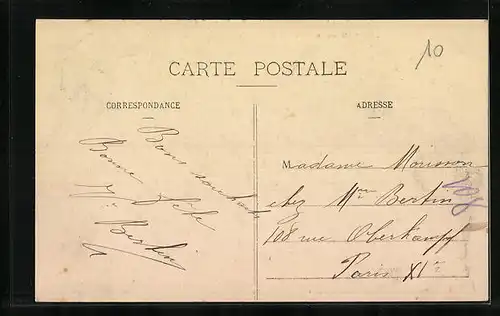 10
CARTE POSTALE
CORRESPONDANCE
Bons souhaits
Bonne fête
Bertin
ADRESSE
Madame Morisson
chez Mme Bertin
108 rue Oberkampf
Paris XIe
108